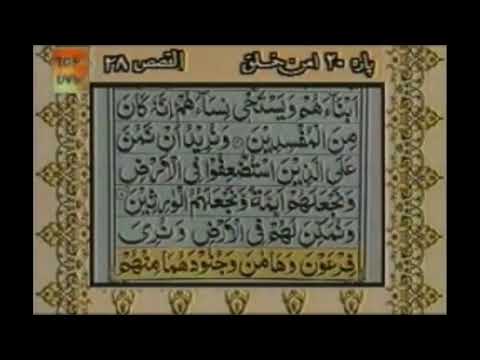 پاره ۲۰ امن خلق
القصص ۲۸
اَبْنَآءَهُمْ وَيَسْتَحْيٖ نِسَآءَهُمْ اِنَّهٗ كَانَ
مِنَ الْمُفْسِدِيْنَ وَنُرِيْدُ اَنْ نَّمُنَّ
عَلَى الَّذِيْنَ اسْتُضْعِفُوْا فِى الْاَرْضِ
وَنَجْعَلَهُمْ اَئِمَّةً وَّنَجْعَلَهُمُ الْوٰرِثِيْنَ
وَنُمَكِّنَ لَهُمْ فِى الْاَرْضِ وَنُرِىَ
فِرْعَوْنَ وَهَامٰنَ وَجُنُوْدَهُمَا مِنْهُمْ